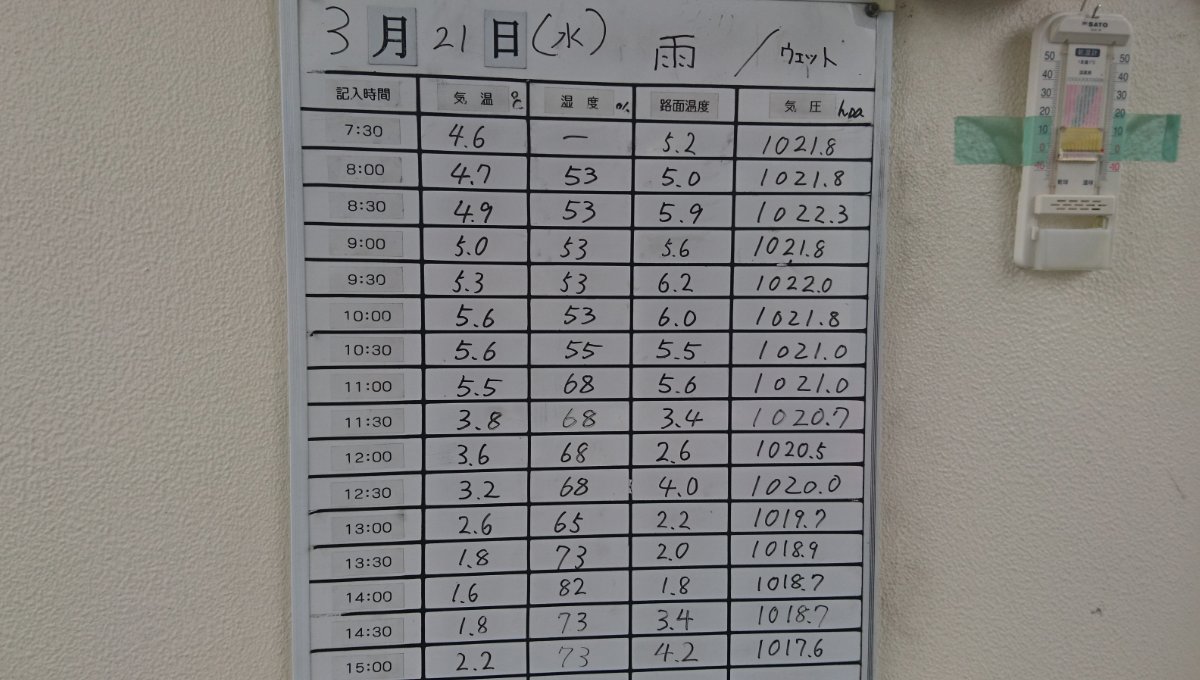 3月21日(水) 雨 / ウェット
記入時間 気温 ℃ 湿度 % 路面温度 気圧 hpa
7:30 4.6 — 5.2 1021.8
8:00 4.7 53 5.0 1021.8
8:30 4.9 53 5.9 1022.3
9:00 5.0 53 5.6 1021.8
9:30 5.3 53 6.2 1022.0
10:00 5.6 53 6.0 1021.8
10:30 5.6 55 5.5 1021.0
11:00 5.5 68 5.6 1021.0
11:30 3.8 68 3.4 1020.7
12:00 3.6 68 2.6 1020.5
12:30 3.2 68 4.0 1020.0
13:00 2.6 65 2.2 1019.7
13:30 1.8 73 2.0 1018.9
14:00 1.6 82 1.8 1018.7
14:30 1.8 73 3.4 1018.7
15:00 2.2 73 4.2 1017.6
SATO
50 50
40 40
30 30
20 20
10 10
0 0
10 10
乾球 湿球